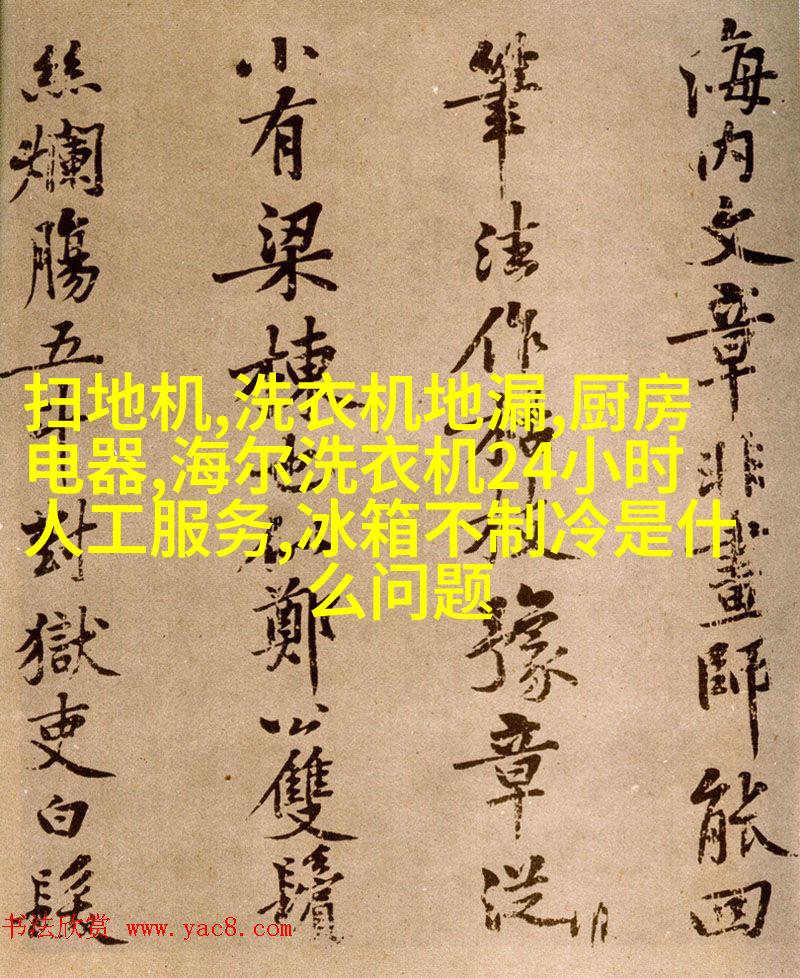 海内文章非畫師能回
筆法作枯枝豫章從
小有梁棟也似鄭公雙鬢
絲爛腸五斗對獄吏白髮
扫地机,洗衣机地漏,厨房
电器,海尔洗衣机24小时
人工服务,冰箱不制冷是什
么问题
书法欣赏 www.yac8.com